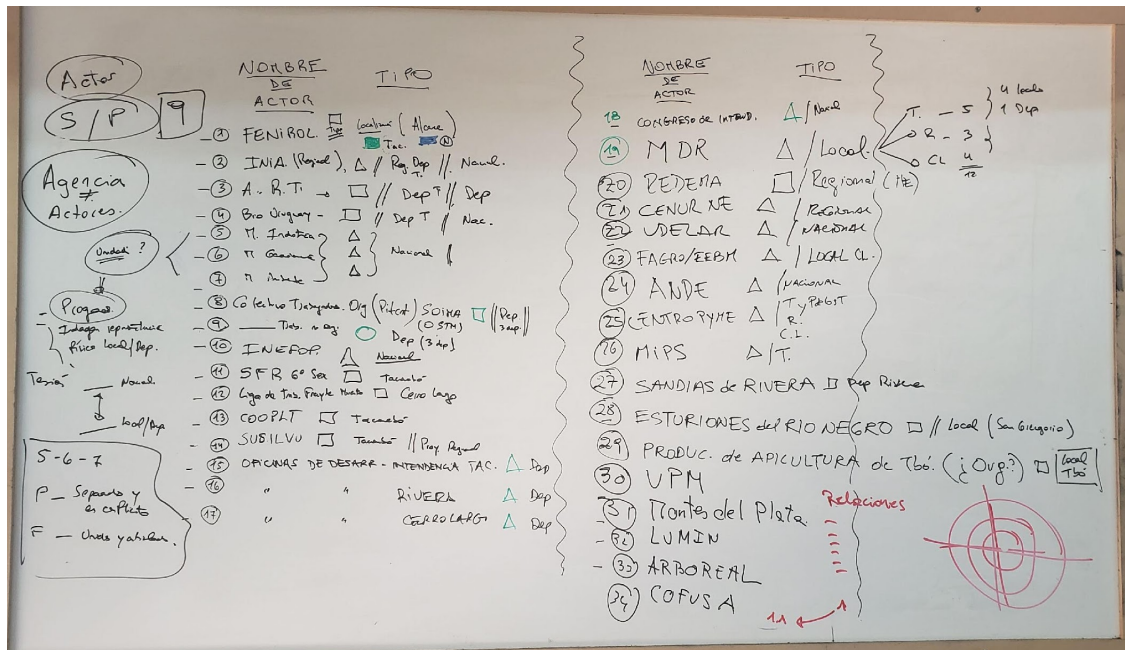 Actores
S/P 9
Agencia
≠
Actores.
Unidad ?
Progresar
Tensión
Nacional
Local/Dep
5-6-7
P - Separado y
F - Unido y
NOMBRE
DE
ACTOR
TIPO
1 FENIROL. Tipo Localización (Alcance)
Tac. N
2 INIA (Regional), Reg. Dep T. // Nacional.
3 A.R.T. → // Dep T // Dep
4 Bio Uruguay - // Dep T // Nac.
5 M. Industria
6 M Ganadería
7 M Ambiente
Nacional
8 Colectivo Trabajadores. Org (Pit-cnt) SOIMA // Dep 3 dep. //
(OSTM)
9 Trab. no org. Dep (3 dep)
10 INEFOP. Nacional
11 SFR 6º Sec Tacuabó
12 Liga de Trab. Fraile Muerto Cerro Largo
13 COOPLT Tacuabó
14 SUBILVU Tacuabó // Proy Regional
15 OFICINAS DE DESARR - INTENDENCIA TAC. Dep
16 " " RIVERA Dep
17 " " CERRO LARGO Dep
NOMBRE
DE
ACTOR
TIPO
18 CONGRESO DE INTEND. / Nacional
19 MDR / Local.
T. - 5
R - 3
CL 4
12
4 locales
1 Dep
20 REDEMA / Regional (NE)
21 CENUR NE / REGIONAL
22 UDELAR / NACIONAL
23 FAGRO/EEBM / LOCAL CL.
24 ANDE / NACIONAL
25 CENTRO PYME / T y
R.
C.L.
26 MIPS / T.
27 SANDIAS de RIVERA Dep Rivera
28 ESTURIONES del RIO NEGRO // Local (San Gregorio)
29 PRODUC. de APICULTURA de Tbó. (¿Org.?) Local Tbó
30 UPM
31 Montes del Plata.
32 LUMIN
33 ARBOREAL
34 COFUSA
Relaciones
11 ← 1